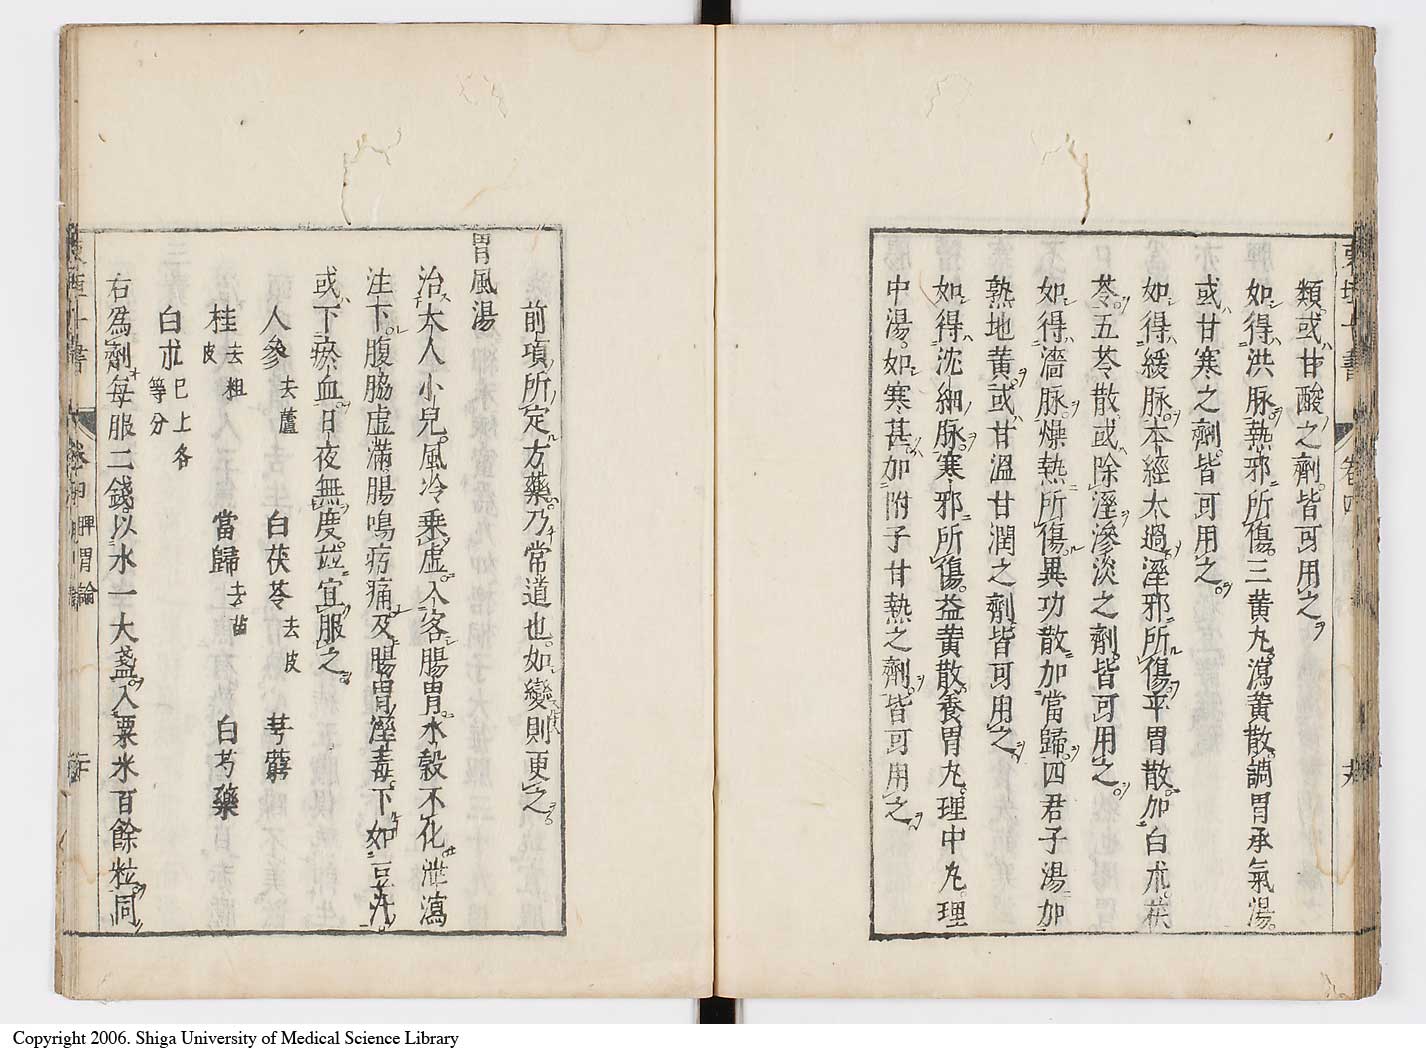 類或甘酸之劑皆可用之
如得洪脉熱邪所傷三黄丸瀉黄散調胃承氣湯
或甘寒之劑皆可用之
如得緩脉本經太過溼邪所傷平胃散加白朮茯
苓五苓散或除溼滲淡之劑皆可用之
如得濇脉燥熱所傷異功散加當歸四君子湯加
熟地黄或甘溫甘潤之劑皆可用之
如得沈細脉寒邪所傷益黄散養胃丸理中丸理
中湯如寒甚加附子甘熱之劑皆可用之
前項所定方藥乃常道也如變則更之
胃風湯
治大人小兒風冷乗虚入客腸胃水穀不化泄瀉
注下腹脇虚滿腸鳴㽲痛及腸胃溼毒下如豆汁
或下瘀血日夜無度並宜服之
人參去蘆 白茯苓去皮 芎藭
桂去粗皮 當歸去苗 白芍藥
白朮已上各等分
右爲劑每服二錢以水一大盞入粟米百餘粒同
卷四 脾胃論
Copyright 2006. Shiga University of Medical Science Library